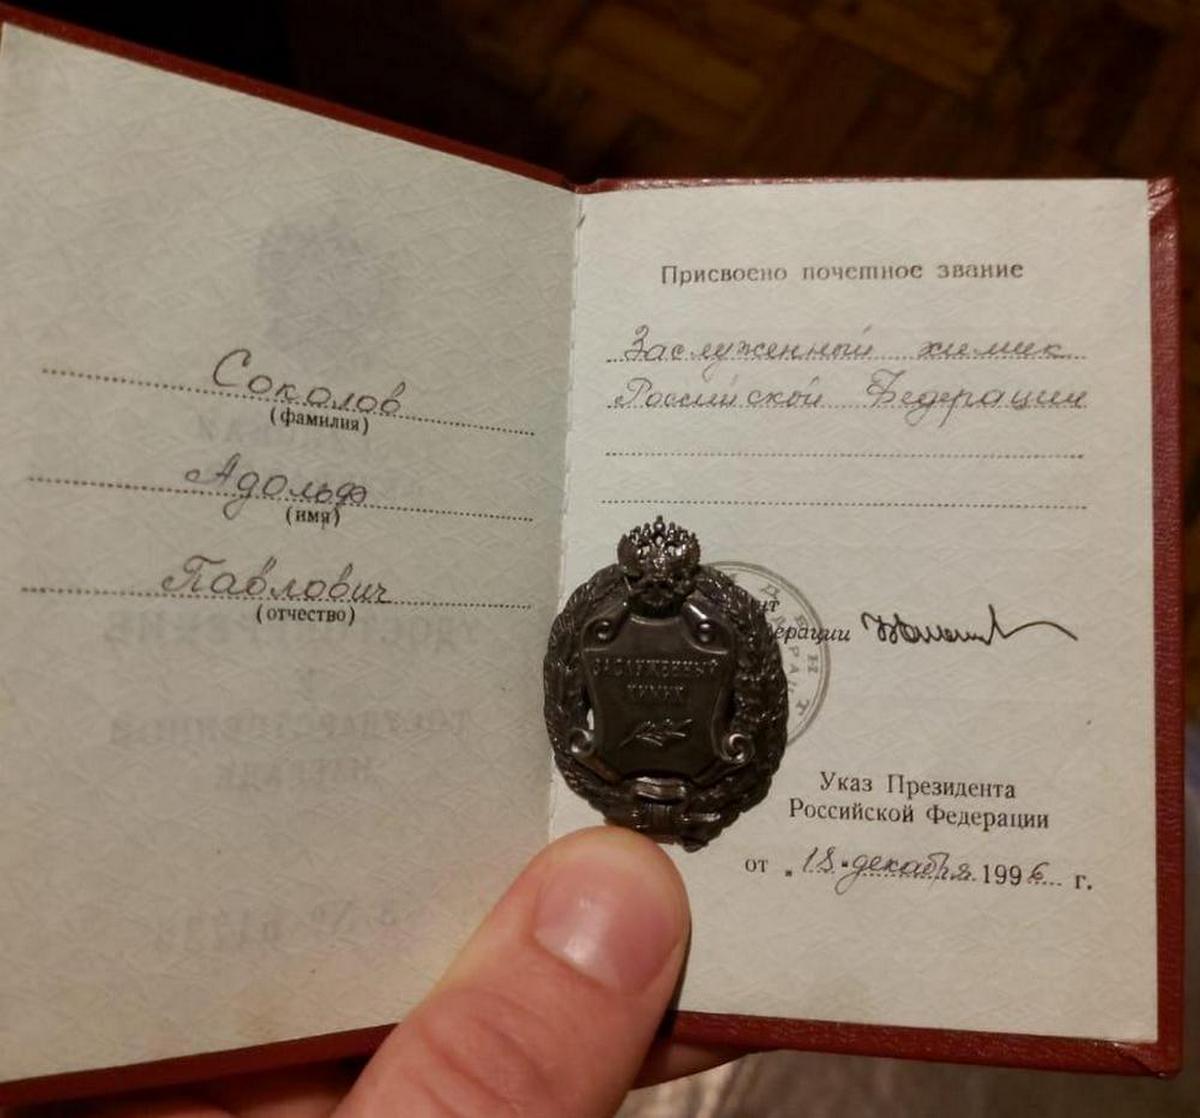 Соколов
(фамилия)
Адольф
(имя)
Павлович
(отчество)
Присвоено почетное звание
Заслуженный химик
Российской Федерации
ЗАСЛУЖЕННЫЙ
ХИМИК
Указ Президента
Российской Федерации
от „18" декабря 1996 г.